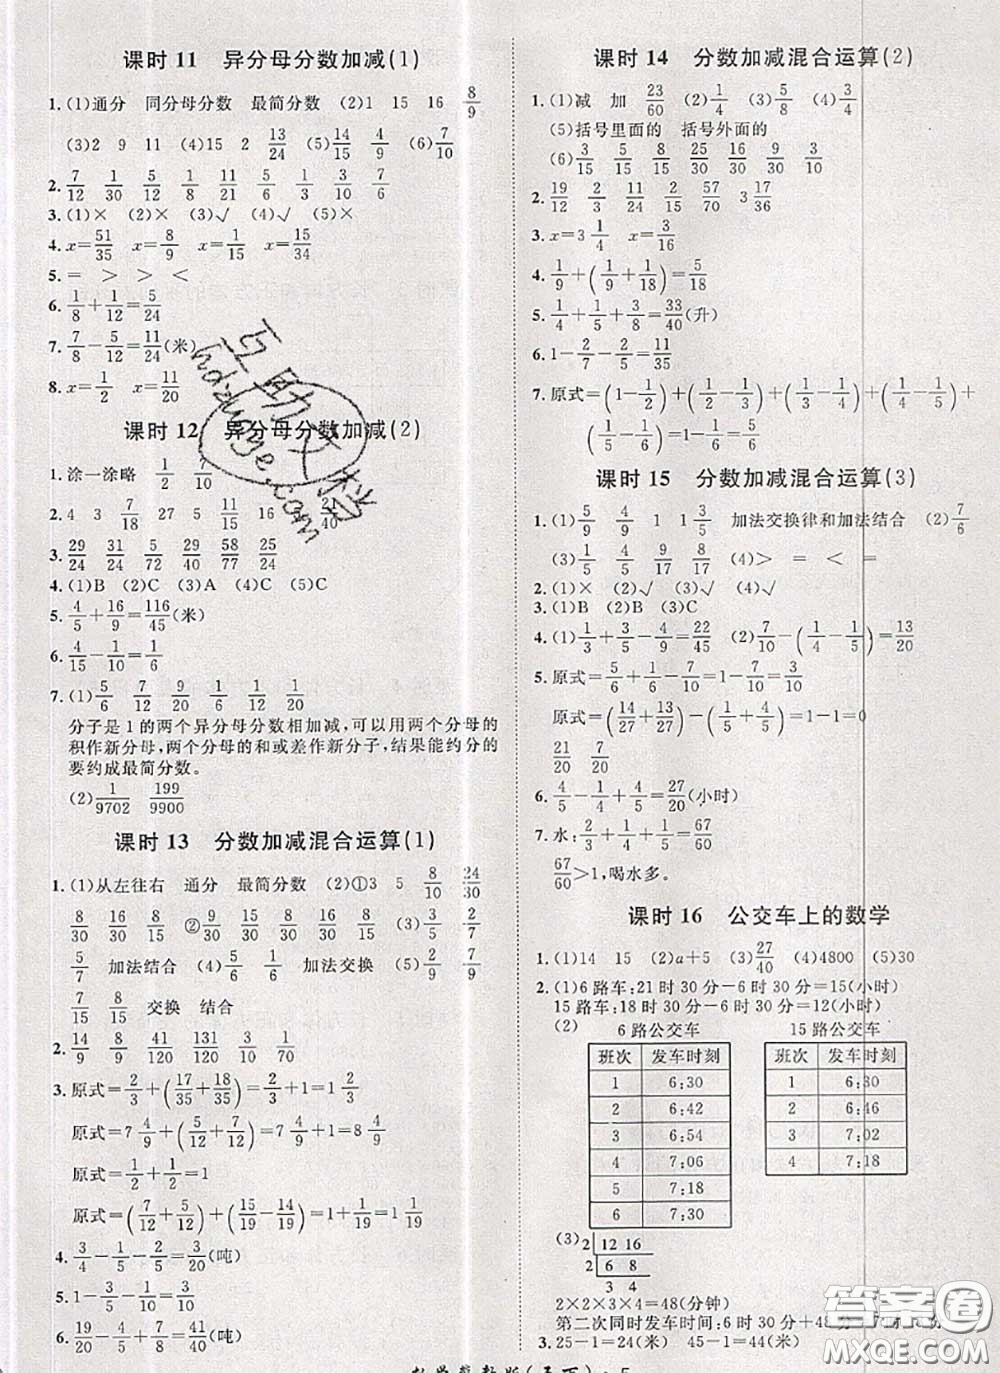 课时 11 异分母分数加减(1)
1. (1)通分 同分母分数 最简分数 (2)1 15 16 8/9
(3)2 9 11 (4)15 2 13/24 (5)14/15 4/9 (6)7/10
2. 7/12 1/30 5/12 1/8 11/21 5/6 1/3 3/10 7/6
3. (1)× (2)× (3)√ (4)√ (5)×
4. x=51/35 x=8/9 x=1/15 x=15/34
5. = > > <
6. 1/8+1/12=5/24
7. 7/8-5/12=11/24(米)
8. x=1/2 x=11/20
课时 12 异分母分数加减(2)
1. 涂一涂略 1/2 7/10
2. 4 3 7/8 27 5 16 21/40
3. 29/24 31/24 5/72 29/40 58/77 25/24
4. (1)B (2)C (3)A (4)C (5)C
5. 4/5+16/9=116/45(米)
6. 4/15-1/10=1/6
7. (1)5/6 7/12 9/20 1/6 1/12 1/20
分子是 1 的两个异分母分数相加减,可以用两个分母的
积作新分母,两个分母的和或差作新分子,结果能约分的
要约成最简分数。
(2)1/9702 199/9900
课时 13 分数加减混合运算(1)
1. (1)从左往右 通分 最简分数 (2)①3 5 8/10 24/30
8/30 16/30 8/15 ②9/30 16/30 8/30 16/30 8/15 (3)3/5 2/5
5/7 加法结合 (4)5/6 1/6 加法交换 (5)2/9 7/9
7/15 8/15 交换 结合
2. 14/9 8/9 41/120 131/120 3/10 1/70
3. 原式=2/3+(17/35+18/35)=2/3+1=1 2/3
原式=7 4/9+(5/12+7/12)=7 4/9+1=8 4/9
原式=1/2+1/2=1
原式=(7/12+5/12)+(15/19-14/19)=1+1/19=1 1/19
4. 3/4-1/5-2/5=3/20(吨)
5. 1-3/5-1/10=3/10
6.
课时 14 分数加减混合运算(2)
1. (1)减 加 23/60 (2)1/4 (3)5/8 (4)3/4
(5)括号里面的 括号外面的
(6)3/15 5/15 8/15 16/30 5/30 9/30 3/10
2. 19/12 2/3 11/40 2/5 57/70 3 17/36
3. x=3 1/4 x=3/16
4. 1/9+(1/9+1/18)=5/18
5. 1/4+1/5+3/8=33/40(升)
6. 1-2/7-2/5=11/35
7. 原式=(1-1/2)+(1/2-1/3)+(1/3-1/4)+(1/4-1/5)+
(1/5-1/6)=1-1/6=5/6
课时 15 分数加减混合运算(3)
1. (1)5/9 4/9 1 1 3/5 加法交换律和加法结合 (2)7/6
(3)4/15 9/16 9/17 8/17 (4)> = < =
2. (1)× (2)√ (3)√
3. (1)B (2)B (3)C
4. (1)1/3+3/5-4/9=22/45 (2)7/10-(1/4-1/5)=13/20
5. 原式=5/6+1/6+4/7=1 4/7
原式=(14/27+13/27)-(1/5+4/5)=1-1=0
21/20 7/20
6. 4/5-1/4+4/5=27/20(小时)
7. 水:2/3+1/4+1/5=67/60
67/60>1,喝水多。
课时 16 公交车上的数学
1. (1)14 15 (2)a+5 (3)27/40 (4)4800 (5)30
2. (1)6 路车:21 时 30 分-6 时 30 分=15(小时)
15 路车:18 时 30 分-6 时 30 分=12(小时)
(2) 6 路公交车 15 路公交车
班次 发车时刻 班次 发车时刻
1 6:30 1 6:30
2 6:42 2 6:46
3 6:54 3 7:02
4 7:06 4 7:18
5 7:18
6 7:30
(3) 2 12 16
2 6 8
3 4
2×2×3×4=48(分钟)
第二次同时发车时间:6 时 30 分+48分=7时
3. 25-1=24(米) 45-1=44(米)
互助文档
hdzuoye.com
答案圈
MXQE.COM